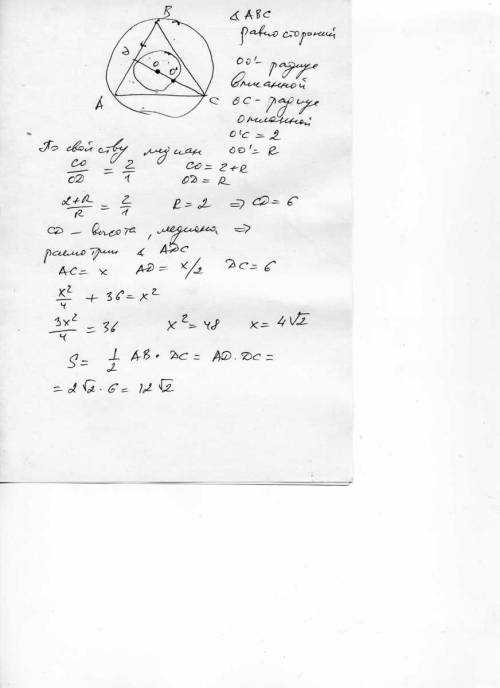 B
∆ ABC
равносторонний
D
O
O'
A
C
OO' - радиус
вписанной
OC - радиус
описанной
O'C = 2
По свойству медиан OO' = R
CO/OD = 2/1 CO = 2+R
OD = R
2+R/R = 2/1 R = 2 ⇒ CD = 6
CD - высота, медиана ⇒
расмотрим ∆ ADC
AC = x AD = x/2 DC = 6
x²/4 + 36 = x²
3x²/4 = 36 x² = 48 x = 4√2
S = 1/2 AB · DC = AD · DC =
= 2√2 · 6 = 12√2